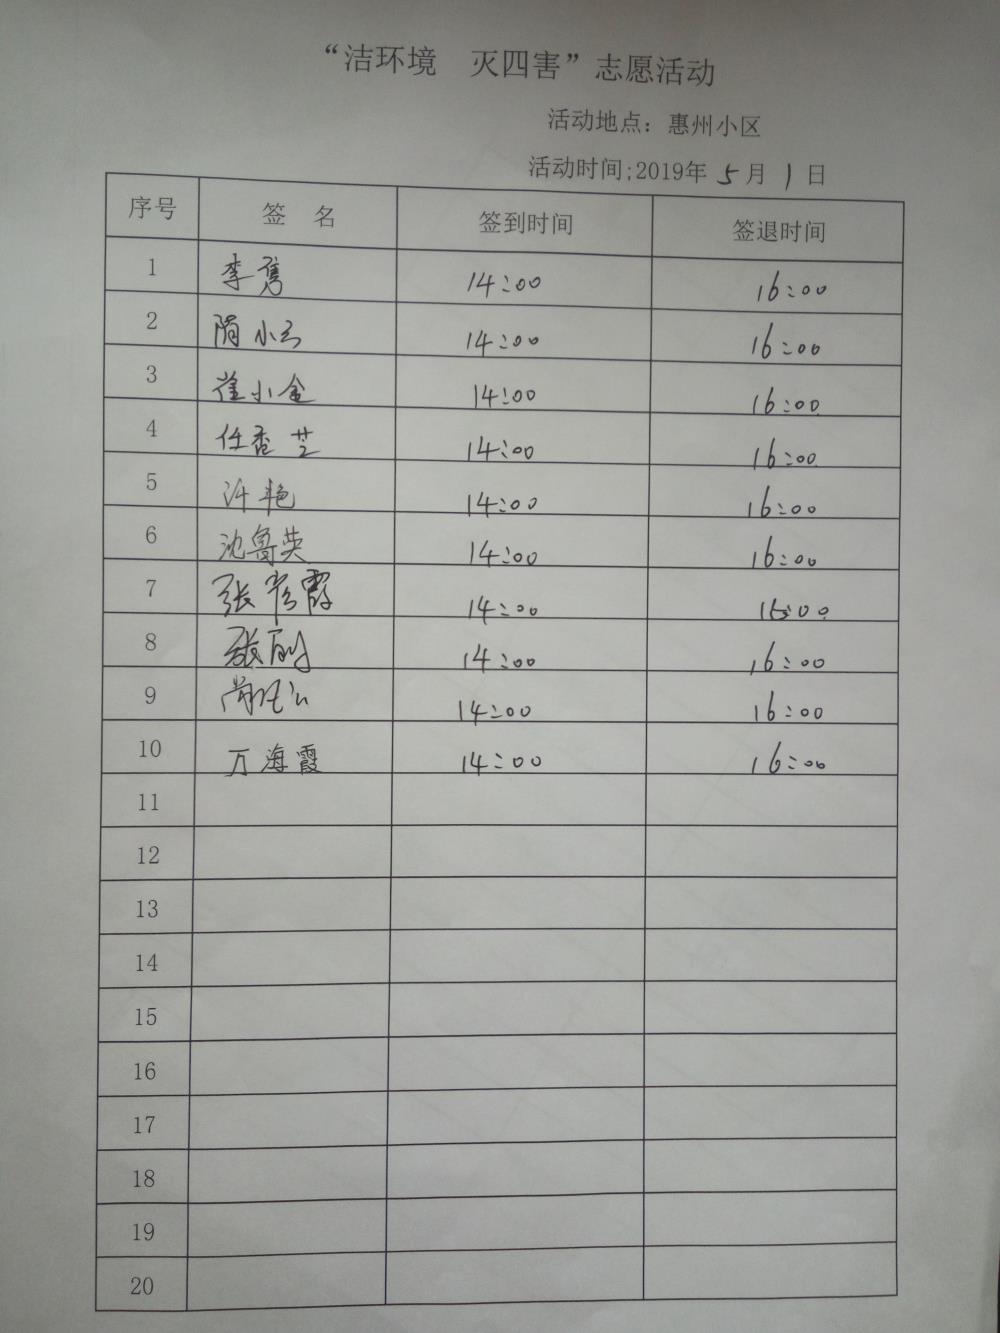 “洁环境 灭四害”志愿活动
活动地点：惠州小区
活动时间;2019年 5 月 1 日
序号 签 名 签到时间 签退时间
1 李隽 14:00 16:00
2 隋小云 14:00 16:00
3 崔小金 14:00 16:00
4 任香芝 14:00 16:00
5 许艳 14:00 16:00
6 沈鲁英 14:00 16:00
7 张彩霞 14:00 15:00
8 张 14:00 16:00
9 14:00 16:00
10 万海霞 14:00 16:00
11
12
13
14
15
16
17
18
19
20